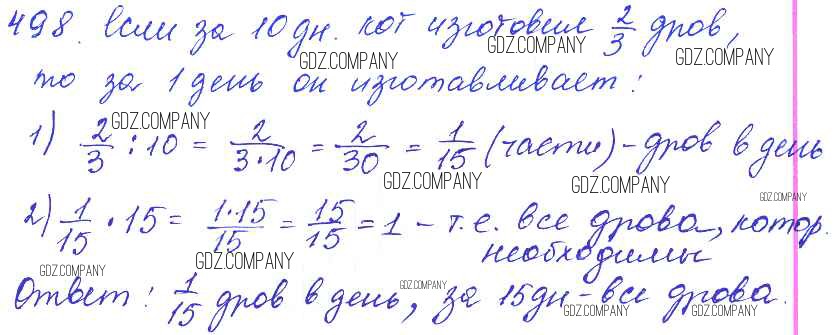 498. Если за 10 дн. кот изготовил 2/3 дров,
GDZ.COMPANY GDZ.COMPANY GDZ.COMPANY
то за 1 день он изготавливает:
GDZ.COMPANY
1) 2/3 : 10 = 2/(3·10) = 2/30 = 1/15 (части) - дров в день
GDZ.COMPANY GDZ.COMPANY GDZ.COMPANY
2) 1/15 · 15 = (1·15)/15 = 15/15 = 1 - т.е. все дрова, котор.
необходимы
GDZ.COMPANY GDZ.COMPANY GDZ.COMPANY
Ответ: 1/15 дров в день, за 15дн - все дрова.
GDZ.COMPANY GDZ.COMPANY